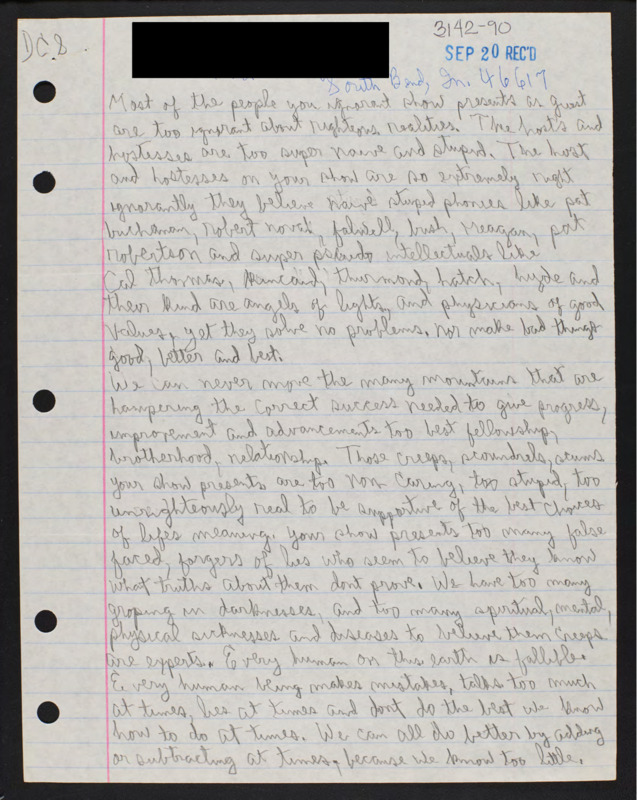 3142-90
DC8.
SEP 20 REC'D
South Bend, In. 46617
Most of the people you ignorant show presents as great
are too ignorant about righteous realities. The hosts and
hostesses are too super naive and stupid. The host
and hostesses on your show are so extremely right
ignorantly they believe naive stupid phonies like pat
buchanan, robert novak, falwell, bush, reagan, pat
robertson and super pseudo intellectuals like
Cal thomas, kincaid, thurmond, hatch, hyde and
their kind are angels of lights, and physicians of good
values, yet they solve no problems. nor make bad things
good, better and best.
We can never move the many mountains that are
hampering the correct success needed to give progress,
improvement and advancements too best fellowship,
brotherhood, relationship. Those creeps, scoundrels, scums
your show presents are too non caring, too stupid, too
unrighteously real to be supportive of the best choices
of lifes meaning. your show presents too many false
faced, forgers of lies who seem to believe they know
what truths about them dont prove. We have too many
groping in darknesses, and too many spiritual, mental,
physical sicknesses and diseases to believe them creeps
are experts. Every human on this earth is fallible.
Every human being makes mistakes, talks too much
at times, lies at times and dont do the best we know
how to do at times. We can all do better by adding
or subtracting at times, because we know too little.